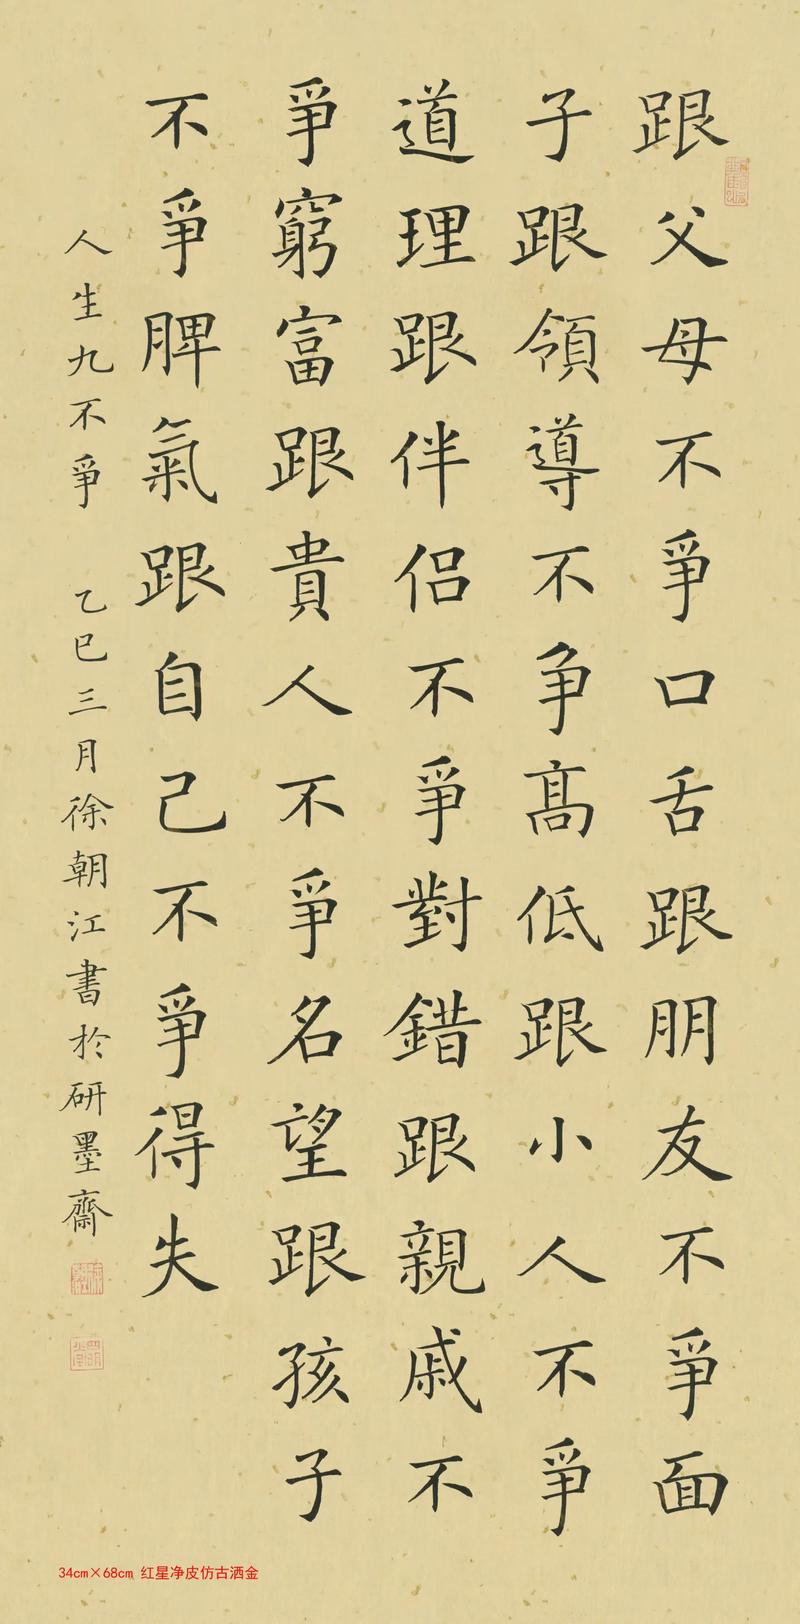 跟父母不爭口舌跟朋友不爭面
子跟領導不争髙低跟小人不爭
道理跟伴侣不爭對錯跟親戚不
爭窮富跟貴人不爭名望跟孩子
不爭脾氣跟自己不爭得失
人生九不爭 乙巳三月徐朝江書於研墨齋
34cm×68cm 红星净皮仿古洒金